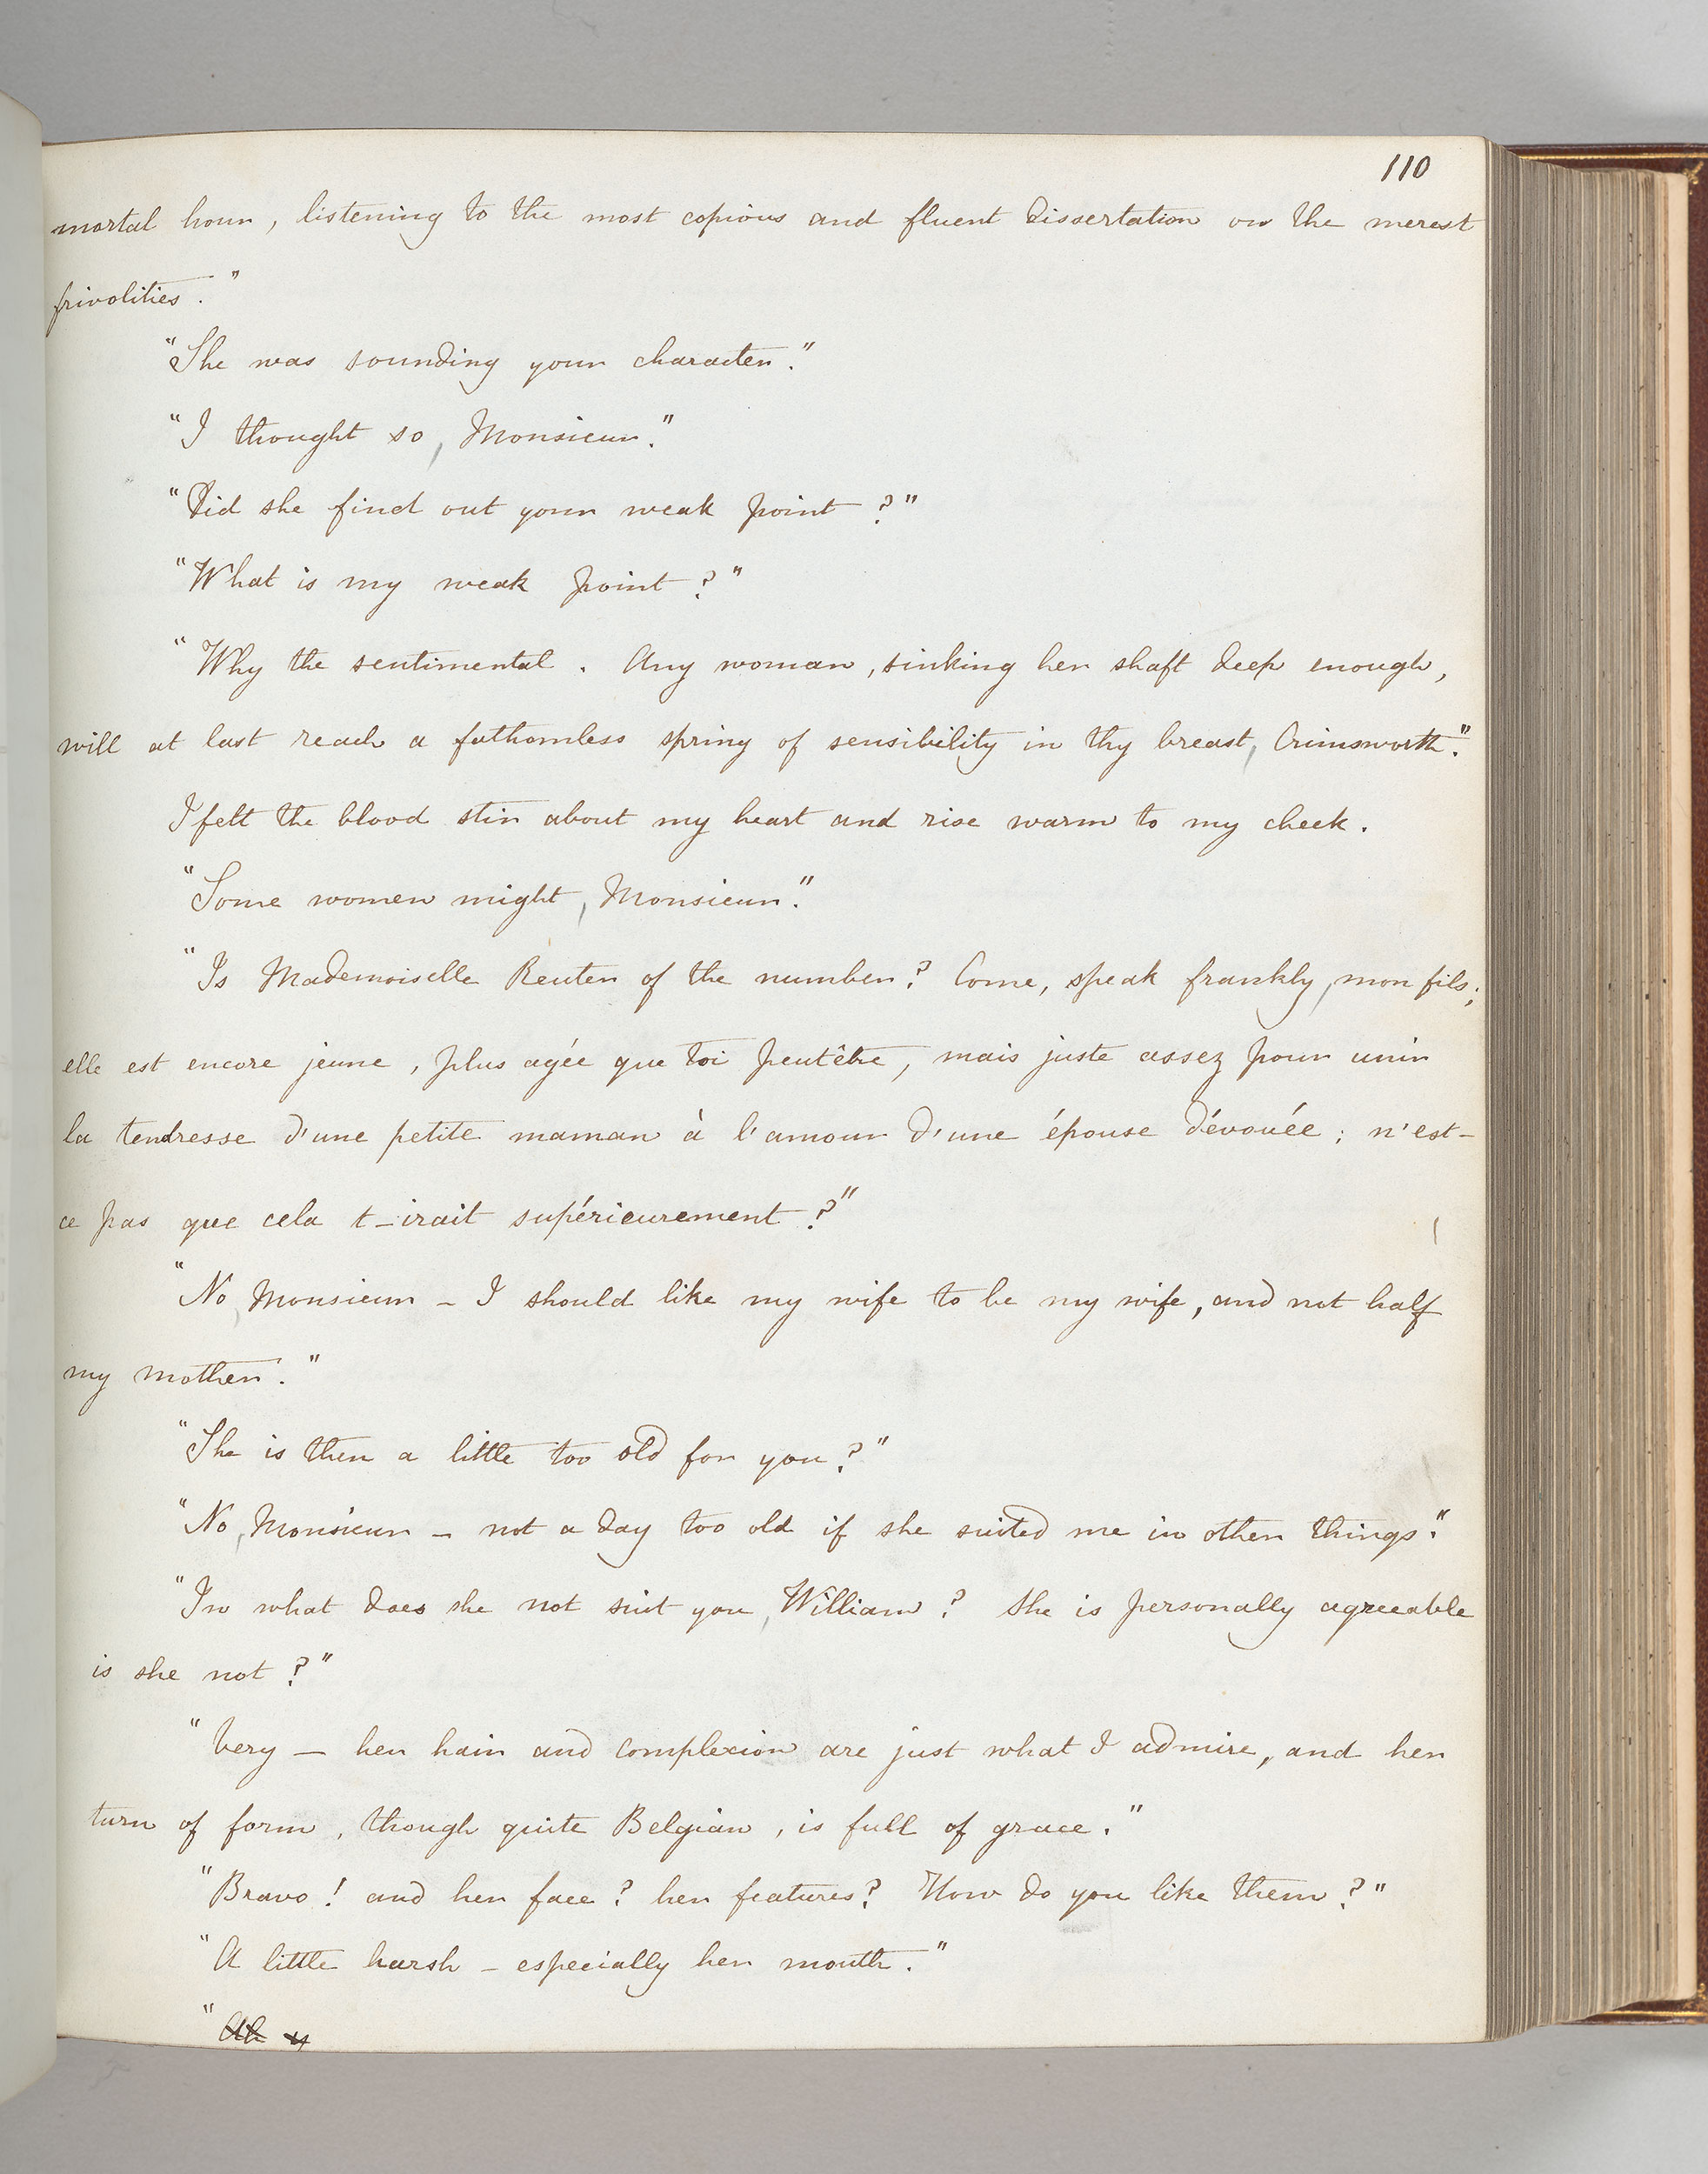 110
mortal hour, listening to the most copious and fluent dissertation on the merest
frivolities."
"She was sounding your character."
"I thought so, Monsieur."
"Did she find out your weak point?"
"What is my weak point?"
"Why the sentimental. Any woman, sinking her shaft deep enough,
will at last reach a fathomless spring of sensibility in thy breast, Crimsworth."
I felt the blood stir about my heart and rise warm to my cheek.
"Some women might, Monsieur."
"Is Mademoiselle Reuter of the number? Come, speak frankly, mon fils;
elle est encore jeune, plus agée que toi peutêtre, mais juste assez pour unir
la tendresse d'une petite maman à l'amour d'une épouse dévouée; n'est-
ce pas que cela t-irait supérieurement?"
"No, Monsieur – I should like my wife to be my wife, and not half
my mother."
"She is then a little too old for you?"
"No, Monsieur – not a day too old if she suited me in other things."
"In what does she not suit you, William? She is personally agreeable
is she not?"
"Very — her hair and complexion are just what I admire, and her
turn of form, though quite Belgian, is full of grace."
"Bravo! and her face? her features? How do you like them?"
"A little harsh – especially her mouth."
"Ah y